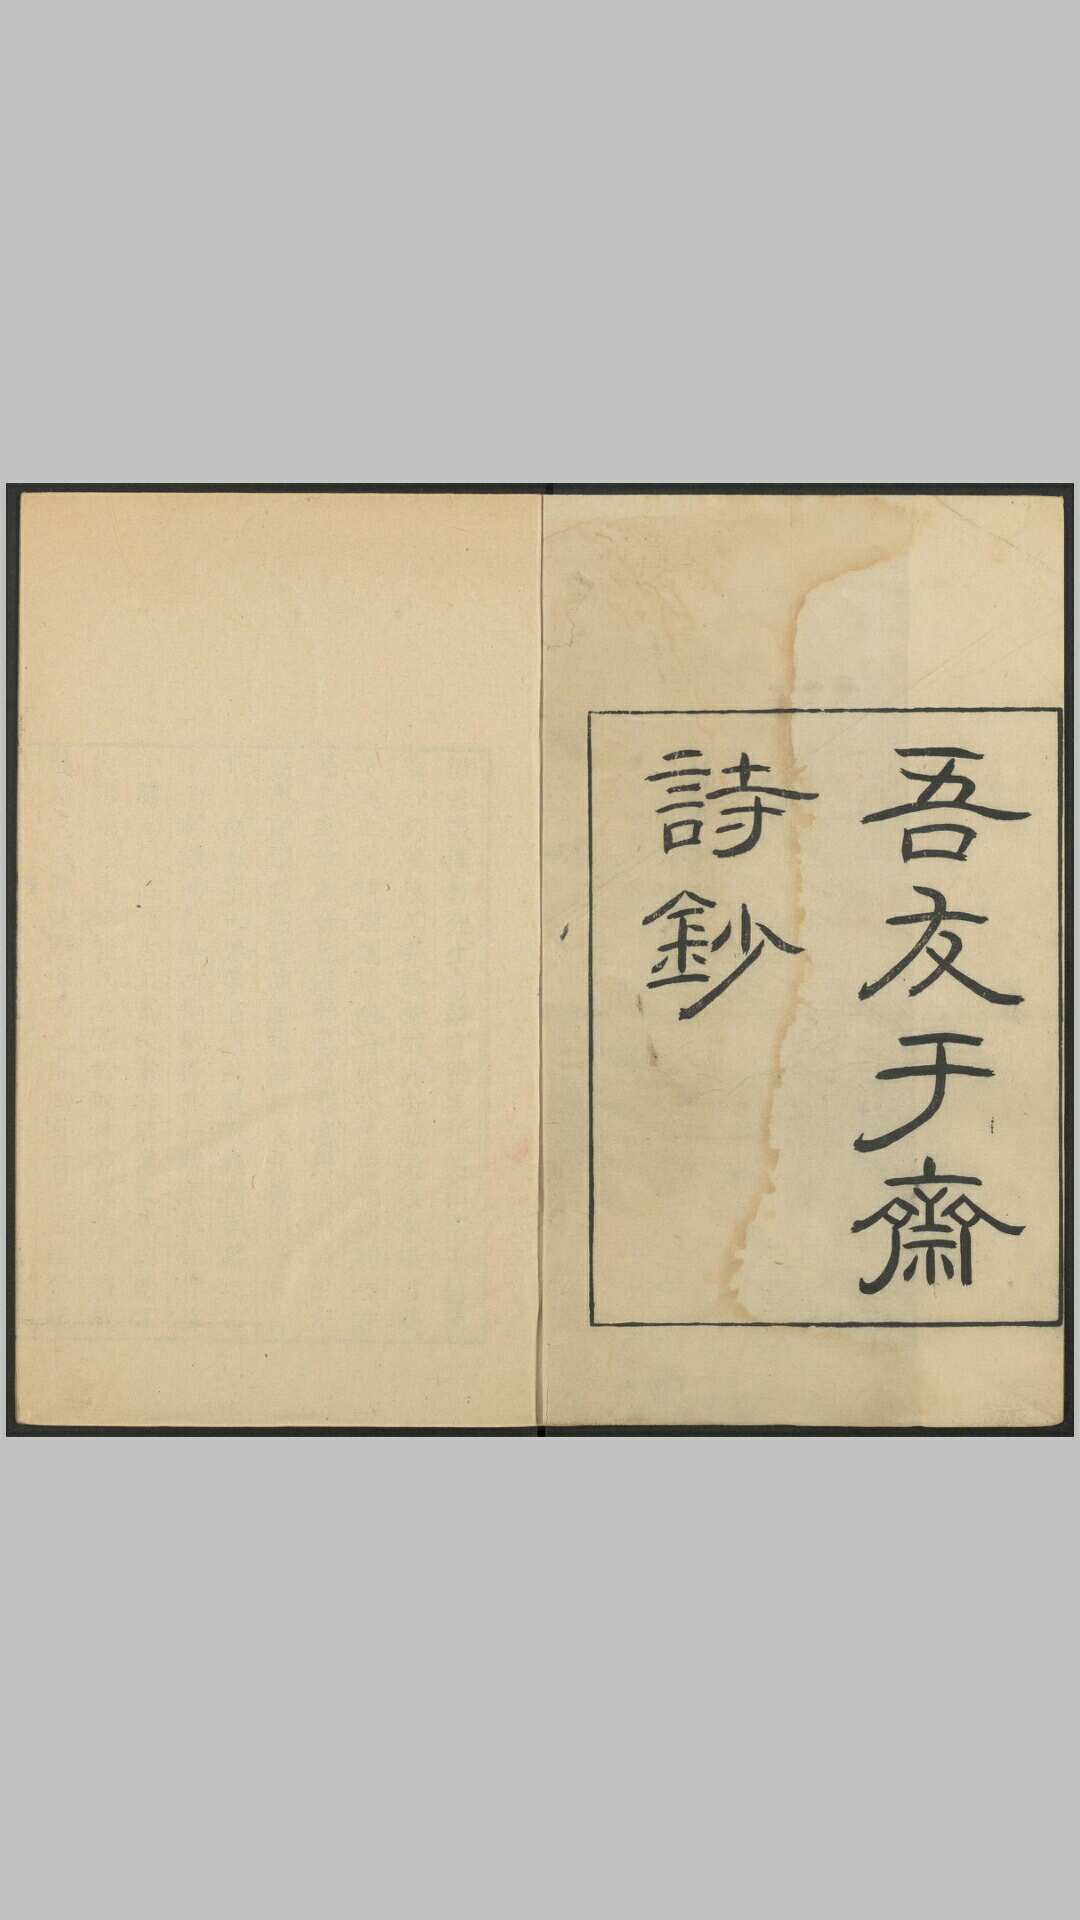 吾友于齋
詩鈔